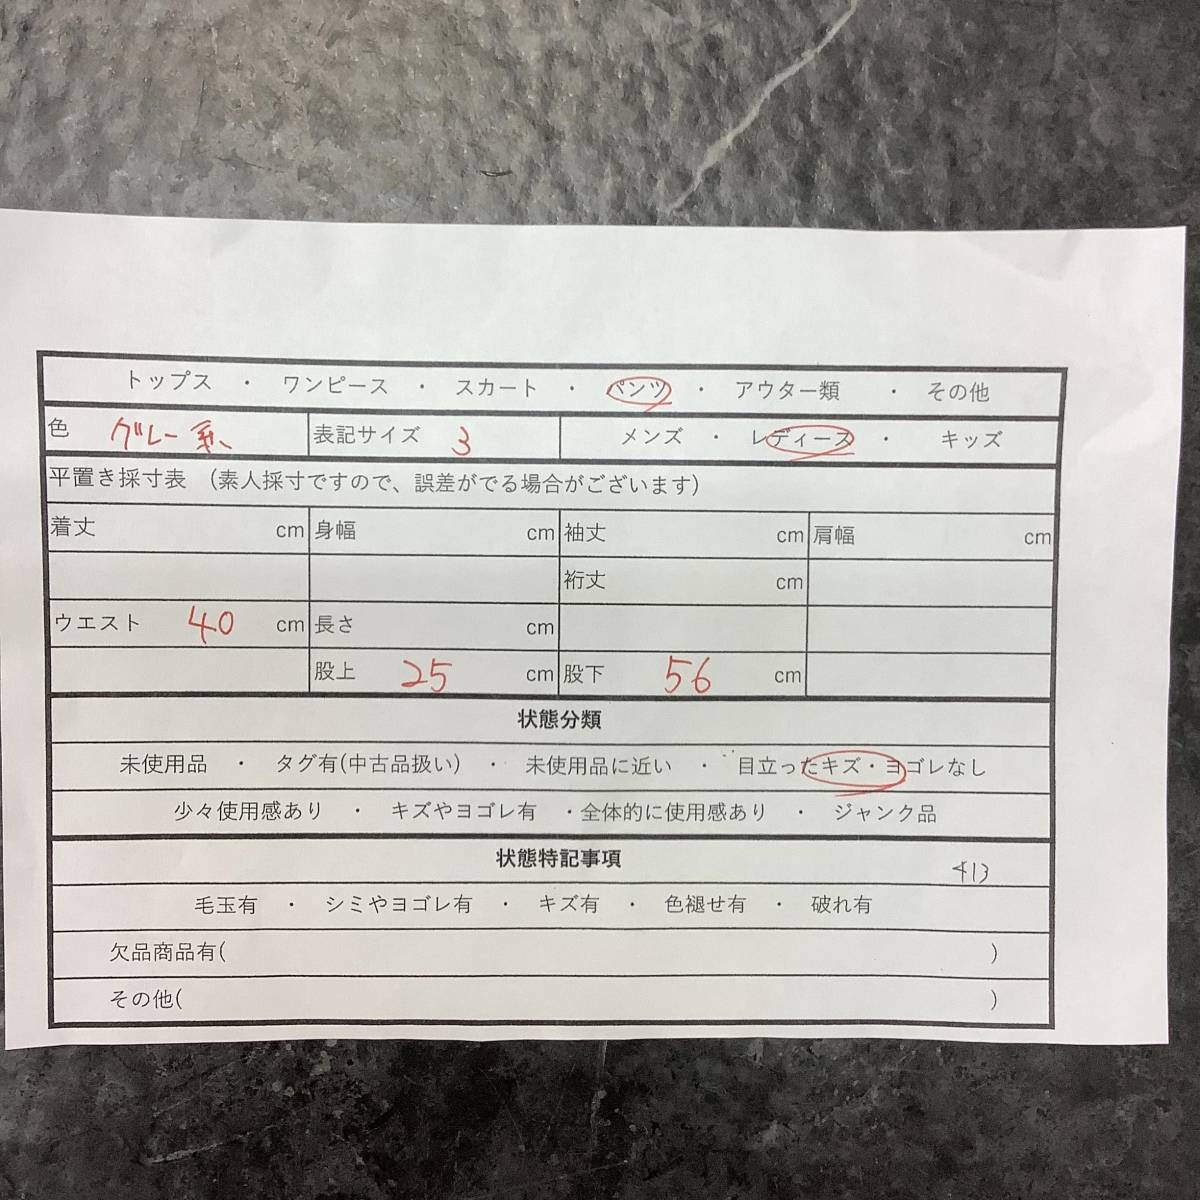 トップス ・ ワンピース ・ スカート ・ パンツ ・ アウター類 ・ その他
色 グレー系 表記サイズ 3 メンズ ・ レディース ・ キッズ
平置き採寸表 (素人採寸ですので、誤差がでる場合がございます)
着丈 cm 身幅 cm 袖丈 cm 肩幅 cm
裄丈 cm
ウエスト 40 cm 長さ cm
股上 25 cm 股下 56 cm
状態分類
未使用品 ・ タグ有(中古品扱い) ・ 未使用品に近い ・ 目立ったキズ・ヨゴレなし
少々使用感あり ・ キズやヨゴレ有 ・全体的に使用感あり ・ ジャンク品
状態特記事項
毛玉有 ・ シミやヨゴレ有 ・ キズ有 ・ 色褪せ有 ・ 破れ有
欠品商品有( )
その他( )